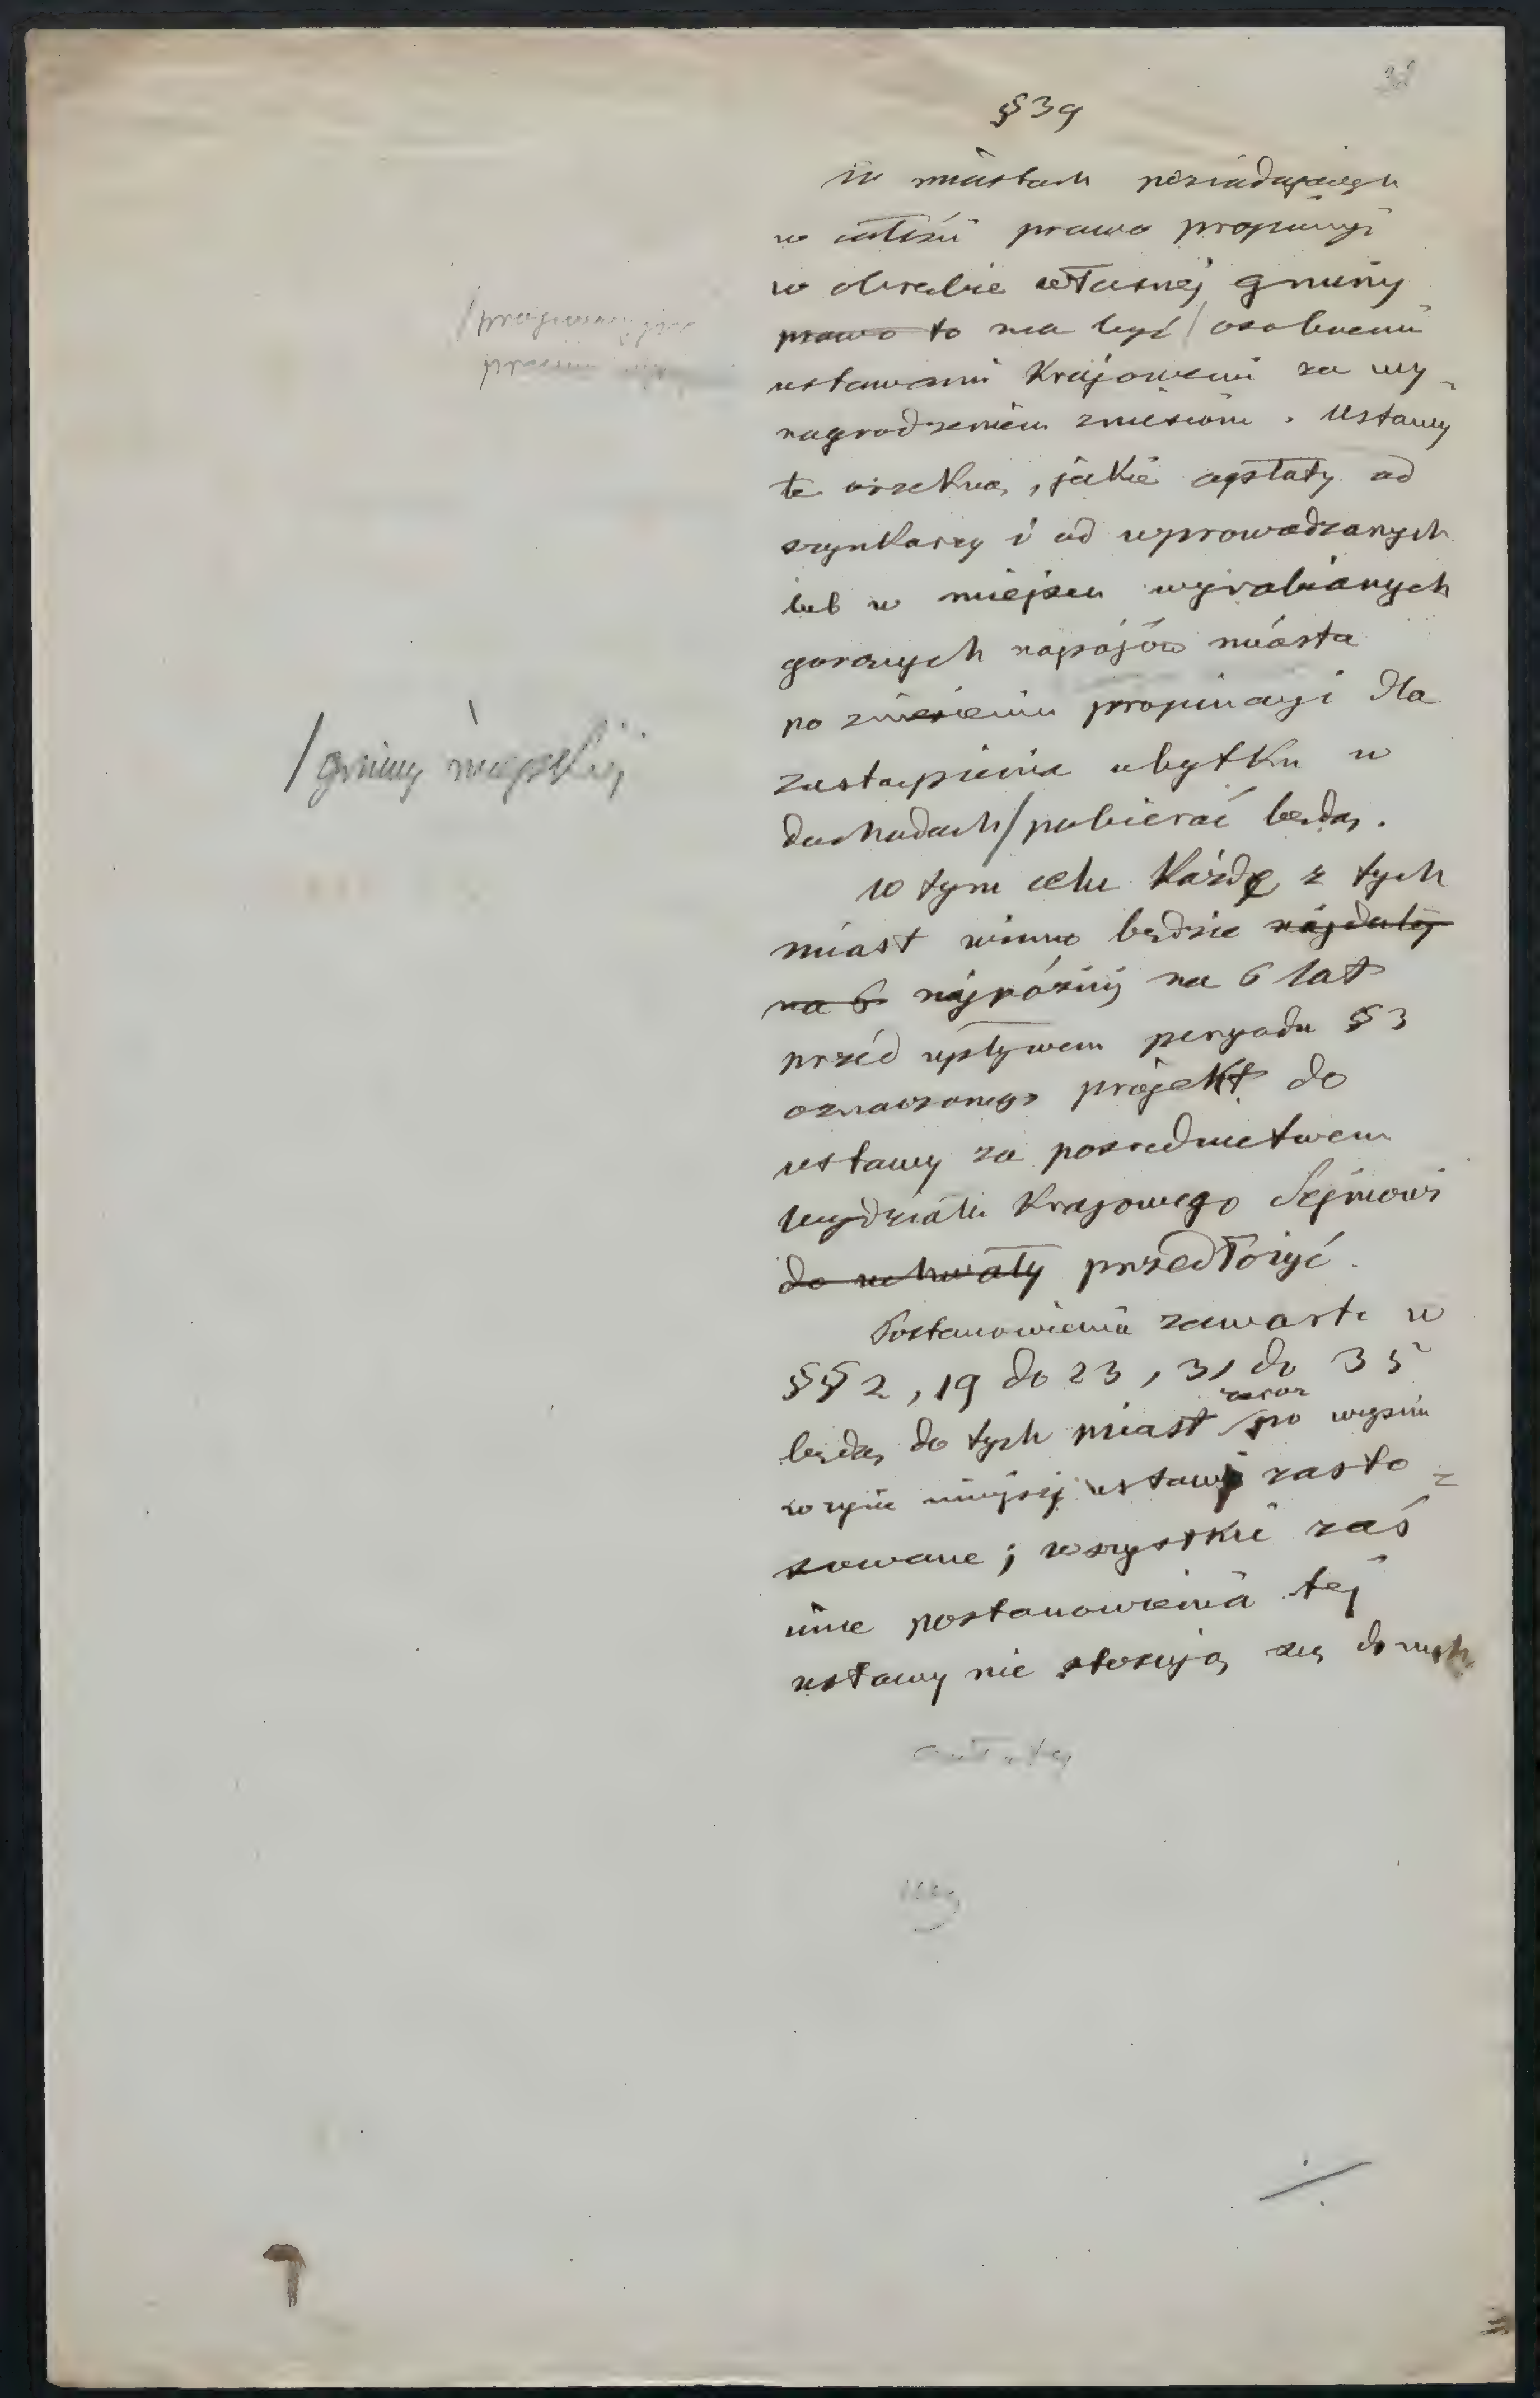 § 39
W miastach posiadających
w całości prawo propinacyi
w obrębie własnej gminy
prawo to ma być / osobnemi
ustawami Krajowemi za wy-
nagrodzeniem zniesione. Ustawy
te orzekną, jakie opłaty od
szynkarzy i od wprowadzanych
lub w miejscu wyrabianych
gorących napojów miasta
po zniesieniu propinacyi dla
zastąpienia ubytku w
/ gminy miejskiej
dochodach / pobierać będą.
W tym celu Każde z tych
miast winno będzie najdalej
na 6 najpóźniej na 6 lat
przed upływem peryodu § 3
oznaczonego projekt do
ustawy za pośrednictwem
Wydziału Krajowego Sejmowi
do uchwały przedłożyć.
Postanowienia zawarte w
§§ 2, 19 do 23, 31 do 35
zaraz
będą do tych miast po wejściu
w życie niniejszej ustawy zasto-
sowane; wszystkie zaś
inne postanowienia tej
ustawy nie stosują się do nich